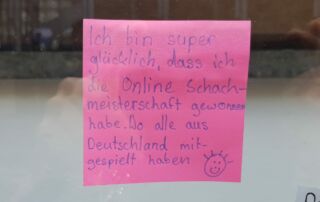 Ich bin super
glücklich, dass ich
die Online Schach-
meisterschaft gewonnen
habe. Do alle aus
Deutschland mit-
gespielt haben